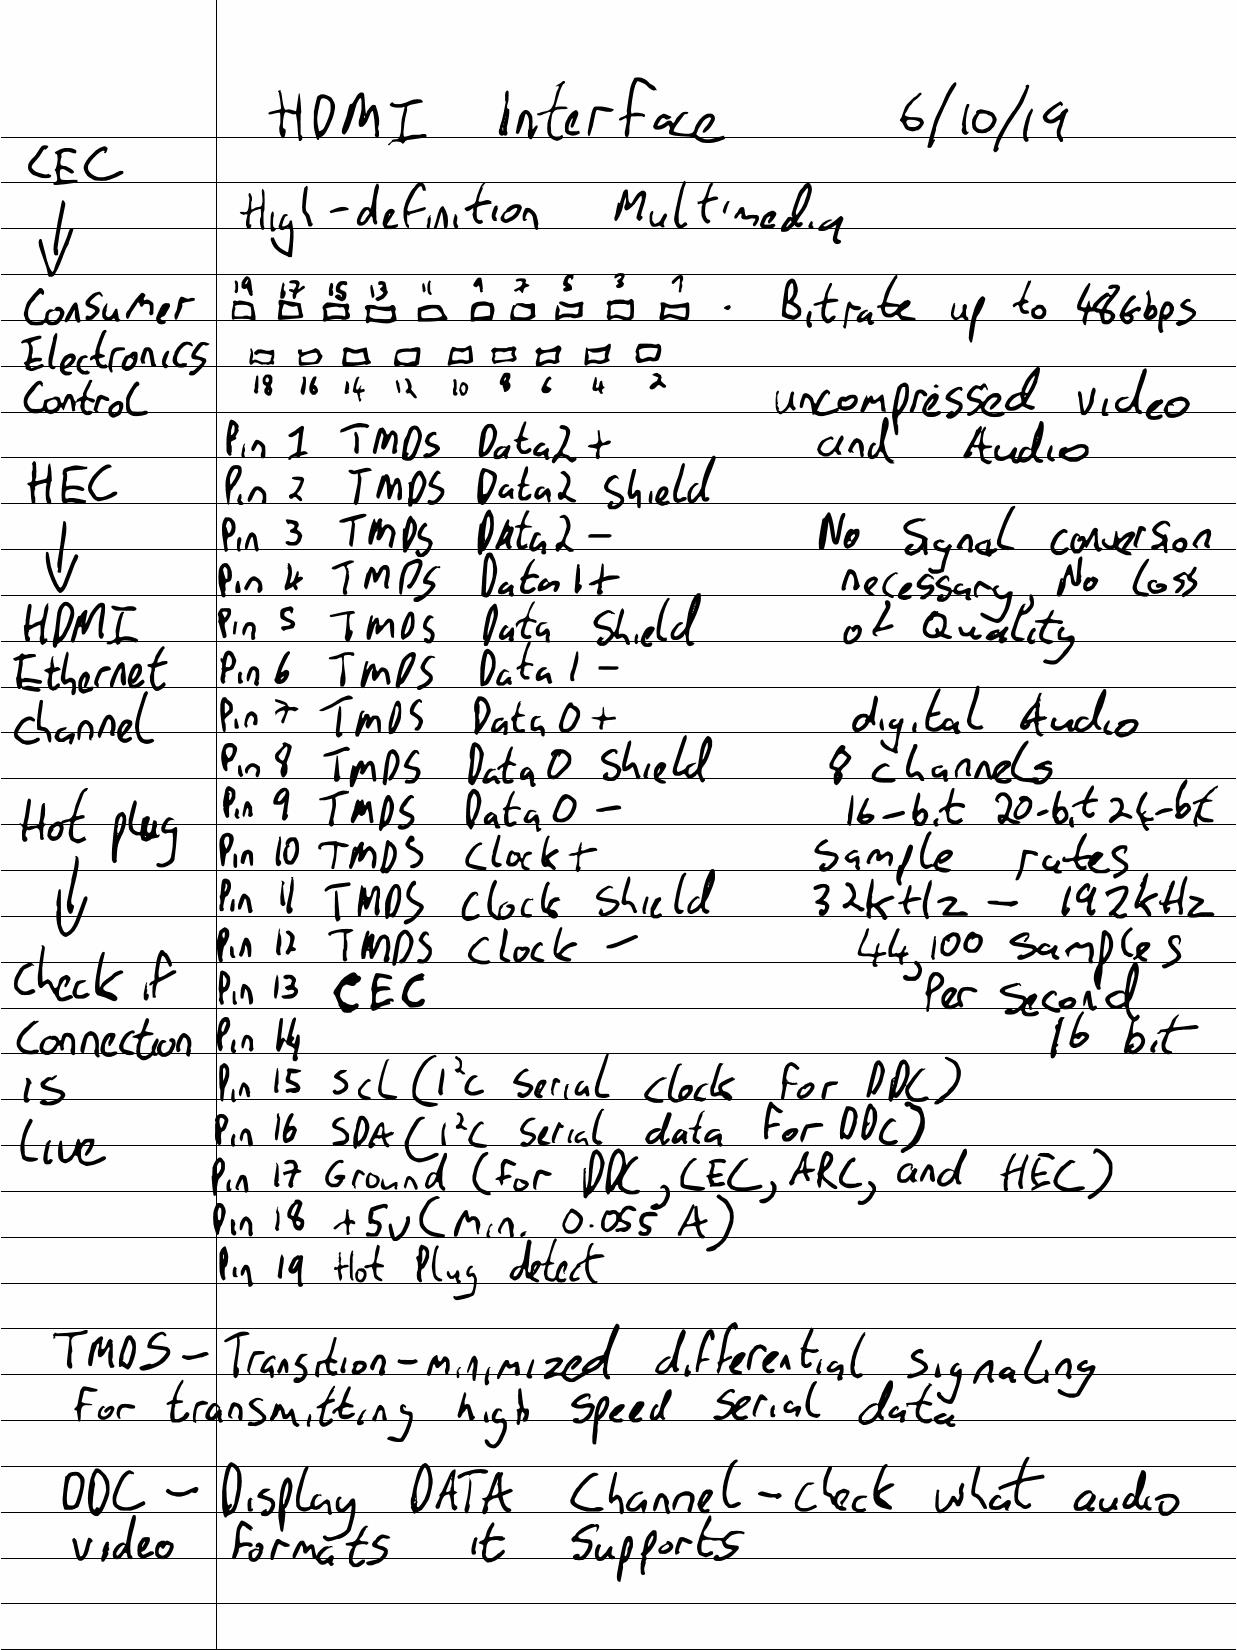 HDMI Interface 6/10/19
CEC
High-definition Multimedia
↓
Consumer
Electronics
Control
HEC
↓
HDMI
Ethernet
channel
Hot plug
↓
Check if
Connection
is
Live
19 17 15 13 11 9 7 5 3 1
18 16 14 12 10 8 6 4 2
Pin 1 TMDS Data2+
Pin 2 TMDS Data2 Shield
Pin 3 TMDS Data2-
Pin 4 TMDS Data1+
Pin 5 TMDS Data Shield
Pin 6 TMDS Data1-
Pin 7 TMDS Data0+
Pin 8 TMDS Data0 Shield
Pin 9 TMDS Data0-
Pin 10 TMDS Clock+
Pin 11 TMDS Clock Shield
Pin 12 TMDS Clock-
Pin 13 CEC
Pin 14
Pin 15 SCL (I²C Serial Clock for DDC)
Pin 16 SDA (I²C Serial data for DDC)
Pin 17 Ground (for DDC, CEC, ARC, and HEC)
Pin 18 +5v (min. 0.055 A)
Pin 19 Hot Plug detect
· Bitrate up to 48Gbps
uncompressed video
and Audio
No Signal conversion
necessary, No Loss
of Quality
digital Audio
8 channels
16-bit 20-bit 24-bit
Sample rates
32kHz - 192kHz
44,100 samples
Per Second
16 bit
TMDS - Transition-minimized differential signaling
For transmitting high speed serial data
DDC - Display DATA Channel - check what audio
video formats it Supports